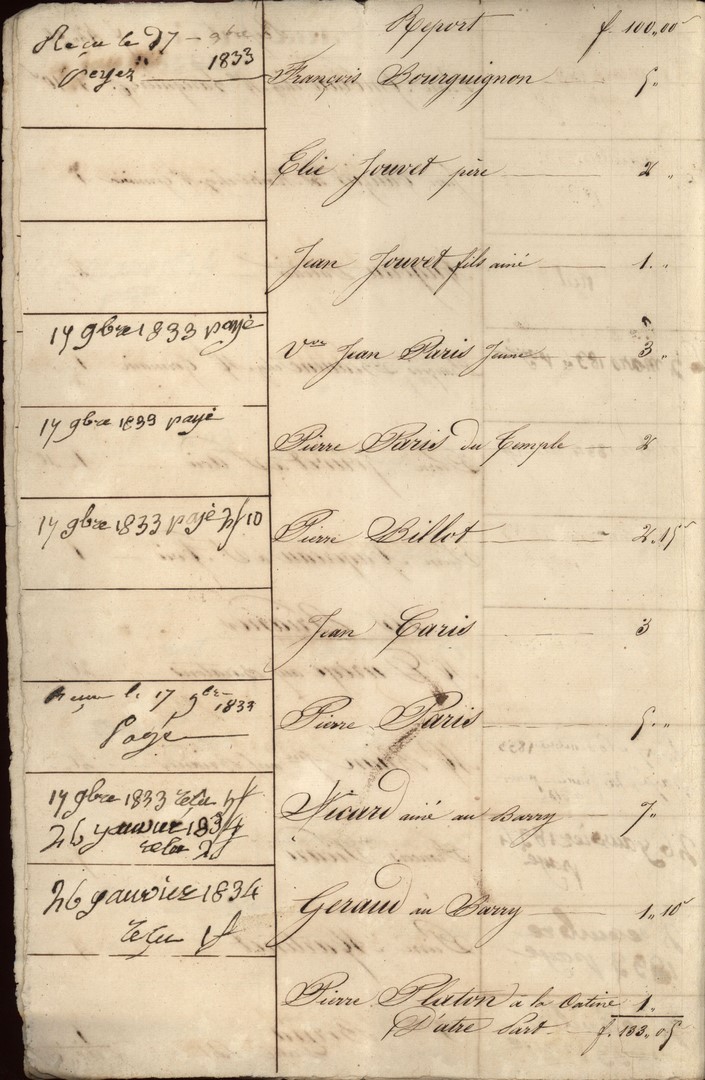 Report f. 100,,00
Recu le 17 gbre 1833
payez
François Bourguignon 5"
Elie Jouvet père 2 "
Jean Jouvet fils ainé 1. "
17 gbre 1833 payé
Vve Jean Paris Jeune 3"
17 gbre 1833 payé
Pierre Paris du Temple 2
17 gbre 1833 payé 2f 10
Pierre Billot 2.15
Jean Caris 3
Recu le 17 gbre 1833
Payé
Pierre Paris 5. "
17 gbre 1833 recu
26 janvier 1834
recu 2f
Nicard ainé au Barry 7"
26 janvier 1834
recu 1f
Geraud au Barry 1,,10
Pierre Platon a la 1"
D'atre Part f. 133,,05